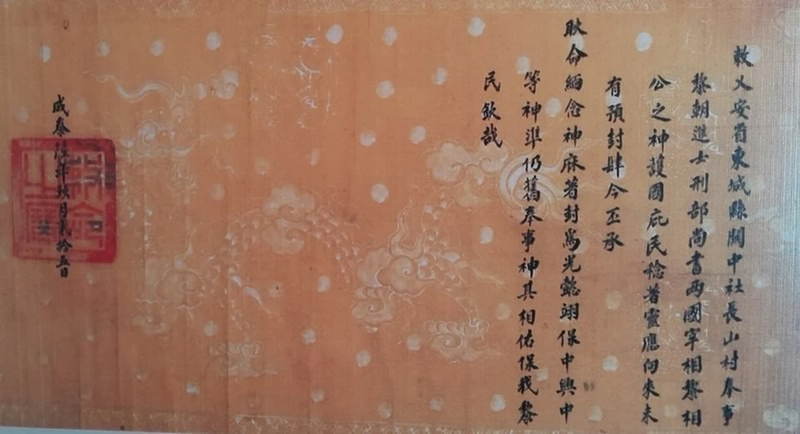 敕乂安省東城縣關中社長山村奉事
黎朝進士刑部尚書兩國宰相黎相
公之神護國庇民稔著靈應向來未
有預封肆今丕承
耿命緬念神庥著封爲光懿翊保中興中
等神準仍舊奉事神其相佑保我黎
民欽哉
成泰陸年玖月貳拾五日
敕命之寶